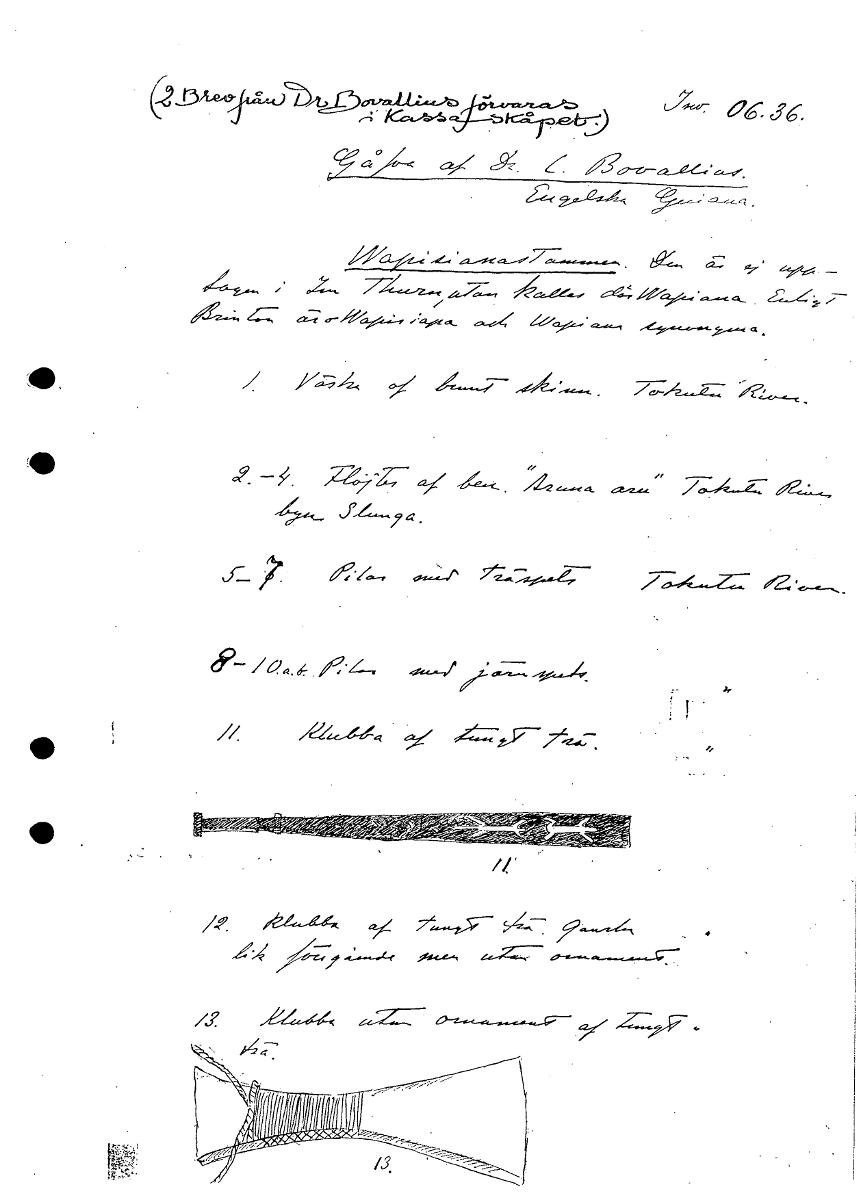 (2 Brev från Dr Bovallius förvaras
i Kassaskåpet.)
Inv. 06.36.
Gåfva af Dr. C. Bovallius.
Engelska Guiana.
Wapisianastammen. Den är ej upp-
tagen i Im Thurn, utan kallas där Wapiana. Enligt
Brinton äro Wapisiana och Wapiana synonyma.
1. Väska af brunt skinn. Tokutu River.
2.-4. Flöjter af ben. "Aruna aru" Tokutu River
byn Slunga.
5-7. Pilar med träspets Tokutu River.
8-10.a.b. Pilar med järnspets. "
11. Klubba af tungt trä. "
11.
12. Klubba af tungt trä. Ganska
lik föregående men utan ornament.
13. Klubba utan ornament af tungt "
trä.
13.